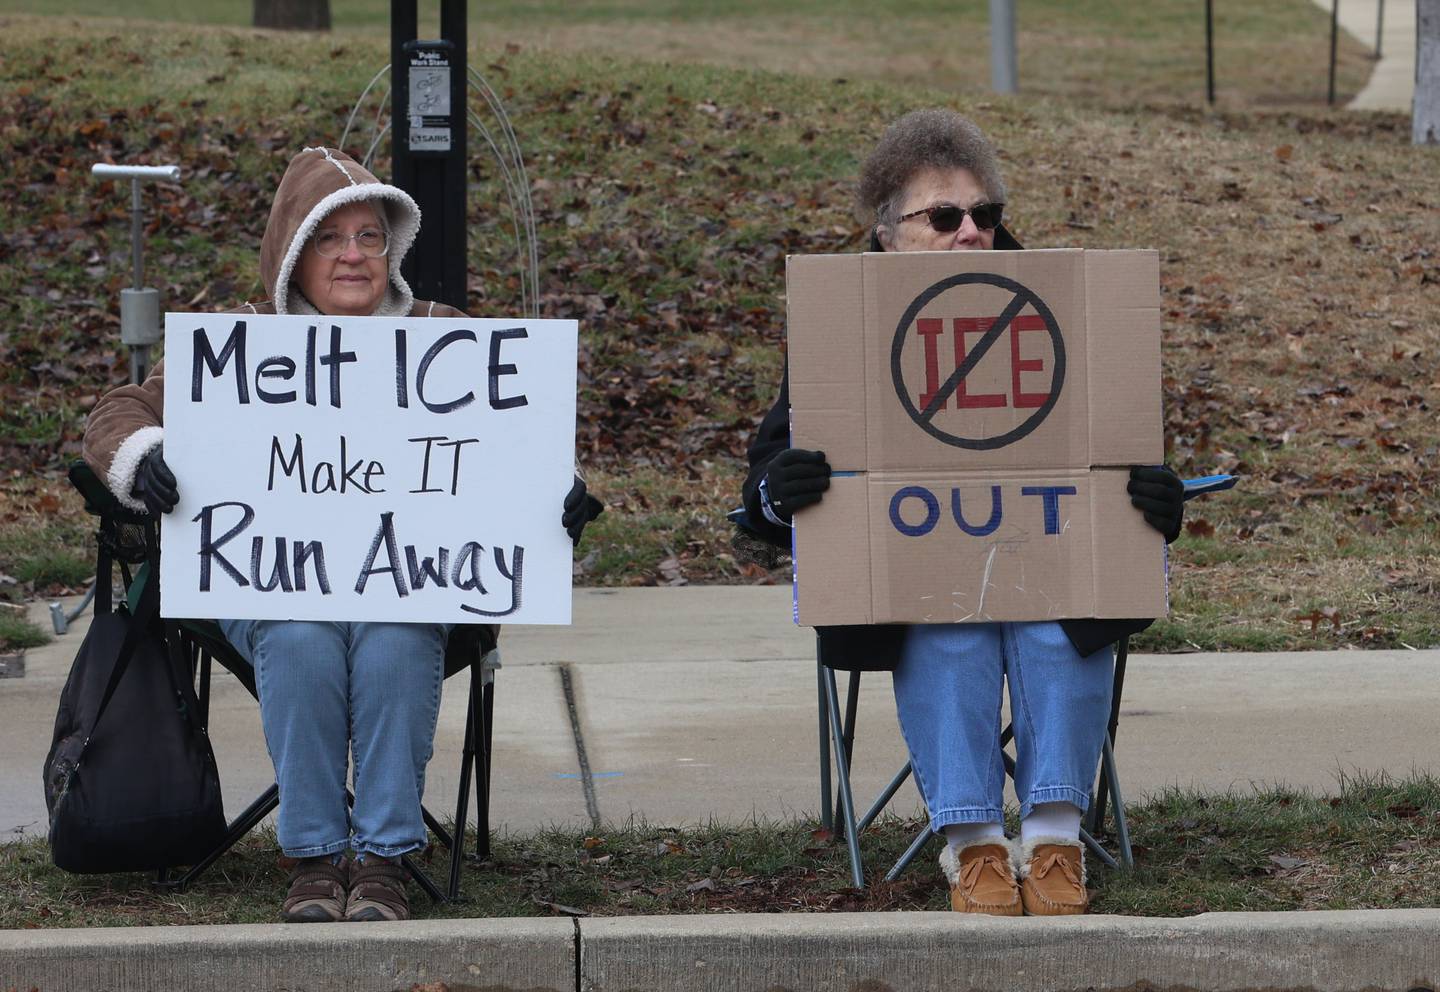 Public
Work Stand
SARIS
Melt ICE
Make IT
Run Away
ICE
OUT